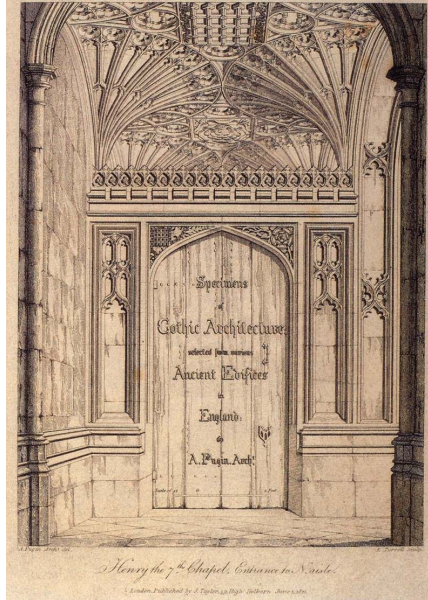 Specimens
of
Gothic Architecture
selected from various
Ancient Edifices
in
England:
by
A. Pugin, Archt.
A. Pugin Archt. del.
E. Turrell sculp.
Henry the 7th Chapel, Entrance to N. aisle.
London, Published by J. Taylor, 59, High Holborn June 1, 1821.